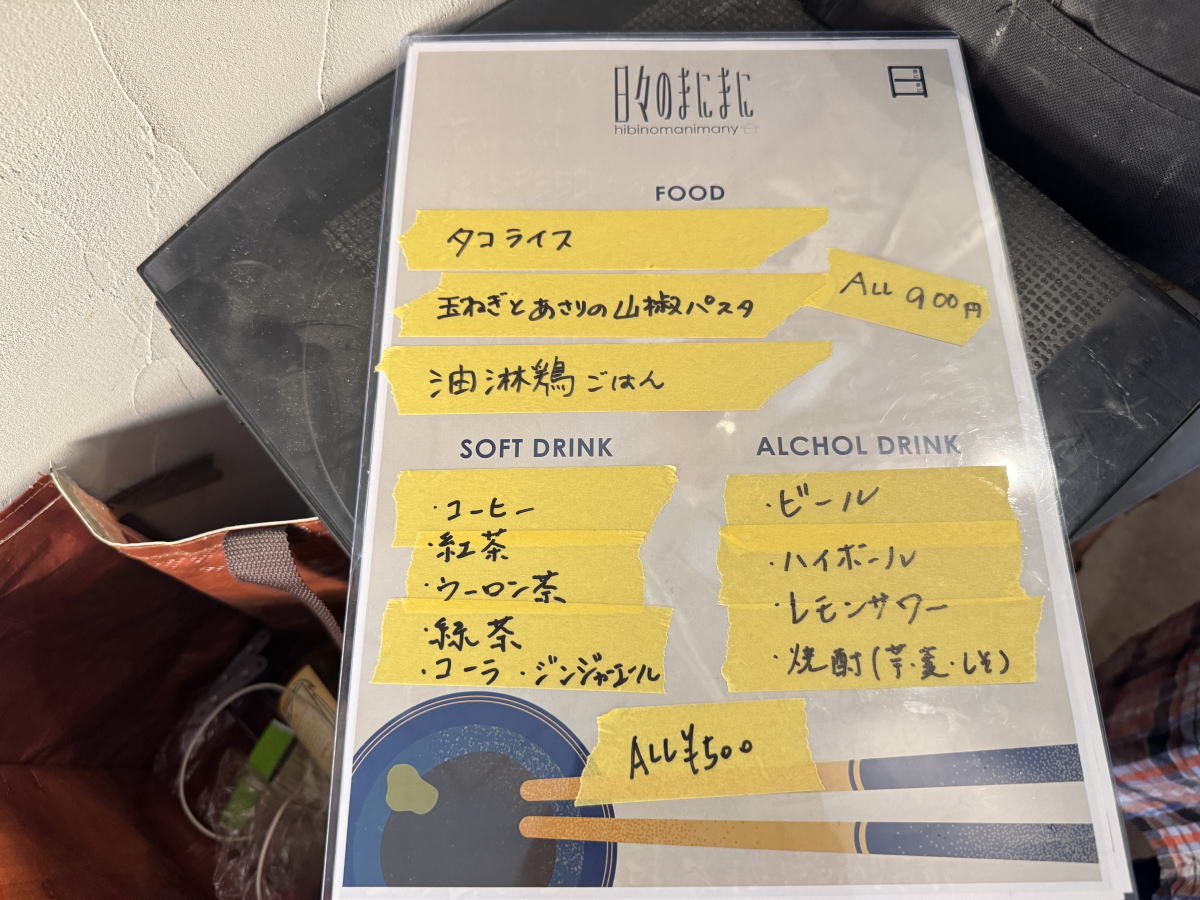 日々のまにまに
hibinomanimany
FOOD
タコライス
玉ねぎとあさりの山椒パスタ
ALL 900円
油淋鶏ごはん
SOFT DRINK
・コーヒー
・紅茶
・ウーロン茶
・緑茶
・コーラ ・ジンジャエール
ALCHOL DRINK
・ビール
・ハイボール
・レモンサワー
・焼酎(芋・麦・しそ)
ALL ¥500